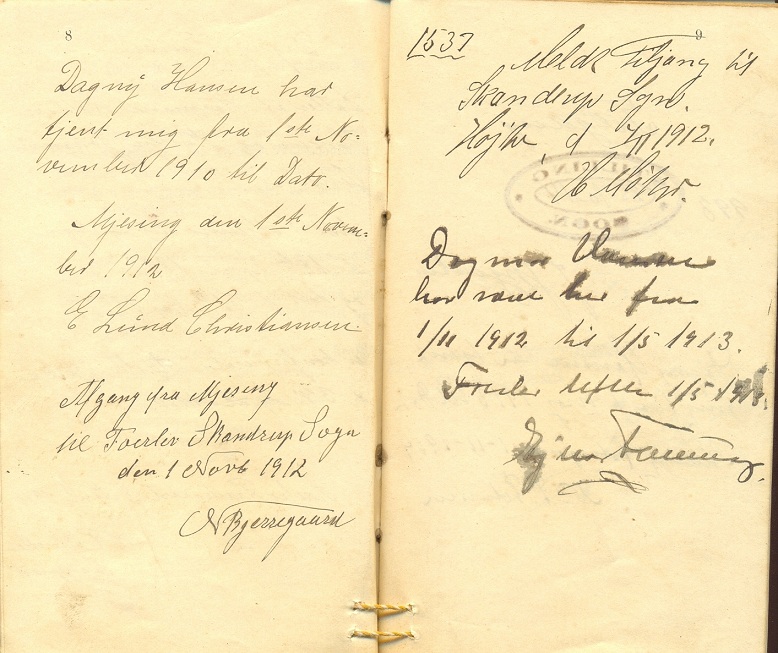 8
Dagny Hansen har
tjent mig fra 1ste No-
vember 1910 til Dato.
Mjesing den 1ste Novem-
ber 1912
E Lund Christiansen.
Afgang fra Mjesing
til Foerlev Skandrup Sogn
den 1 Novb 1912
N Bjerregaard
9
1537
Meldt Tilgang til
Skanderup Sogn.
d 7/11 1912.
SOGN
Dagmar Hansen
har været her fra
1/11 1912 til 1/5 1913.
1/5 1913.